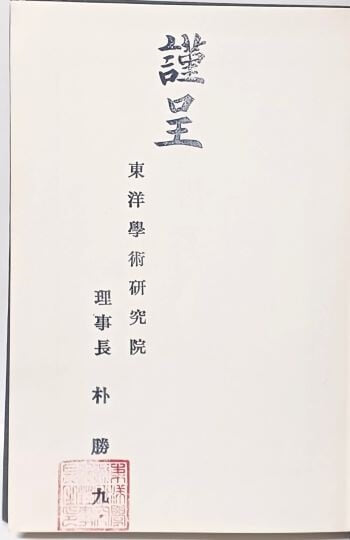 謹呈
東洋學術研究院
理事長 朴勝九